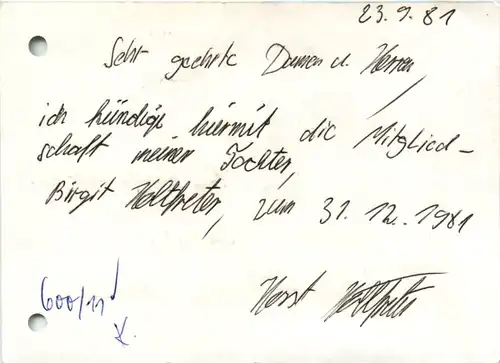 23.9.81
Sehr geehrte Damen u. Herren,
ich kündige hiermit die Mitglied-
schaft meiner Tochter,
Birgit Holtfreter, zum 31.12.1981
Horst Holtfreter
600/11